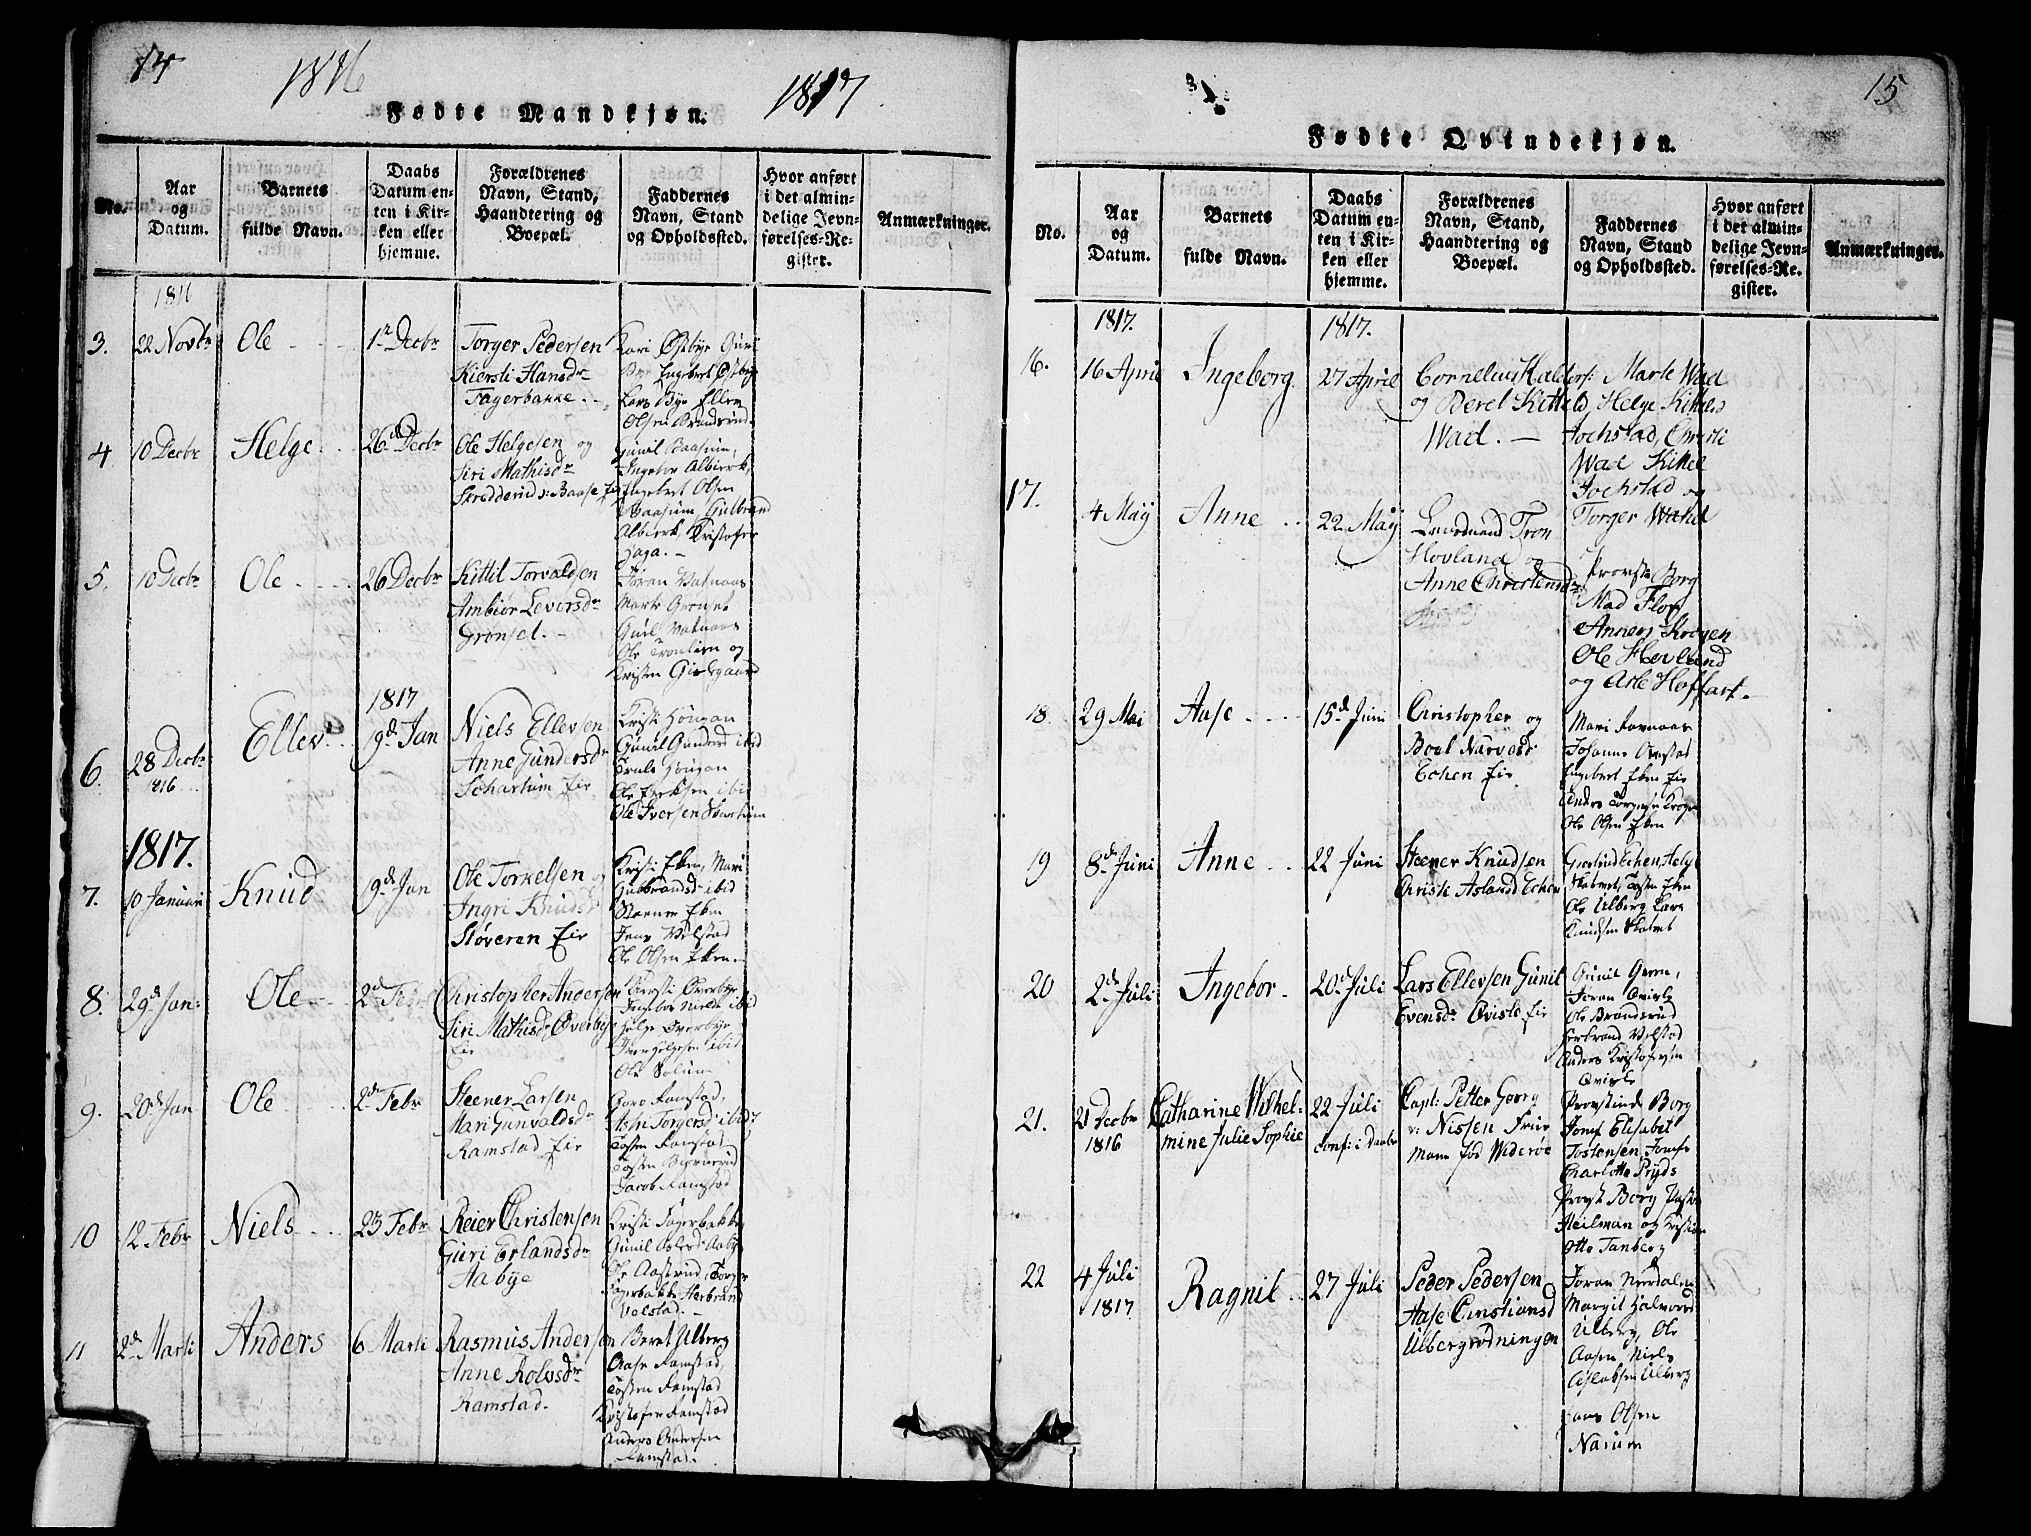 14
1816
1817
Fødte Mandkjøn.
No.
Aar
og
Datum.
Barnets
fulde Navn.
Daabs
Datum en-
ten i Kir-
ken eller
hjemme.
Forældrenes
Navn, Stand,
Haandtering og
Boepæl.
Faddernes
Navn, Stand
og Opholdssted.
Hvor anført
i det almin-
delige Jevn-
førelses-Re-
gister.
Anmærkninger.
3.
22 Novbr
Ole
1r Decbr
Torger Pedersen
Kiersti Hansdr
Fagerbakke
Kari Østbye Guri
Bye Engebret Østbye
Lars Bye Ellew
Olsen Brandsrud
4
10 Decbr
Helge
26d Decbr
Ole Helgesen og
Siri Mathisdr
Gunil Baasum,
Ingebor Albierk,
Engebret Olsen
Baasum, Gulbrand
Albierk Kristofer
Haga. -
5.
10 Decbr
Ole
26 Decbr
Kittil Torvaldsen
Ambiør Leversdr
Grønset. -
Jøran Vatnaas
Marte Grønset
Gunil Vatnaas
Ole Tronlien og
Kristen Gislegaard
6.
28 Decbr
1816
Ellev
1817
19d Jan
Niels Ellevsen
Anne Gundersdr
Schartum Eir
Kristi Høugan
Gunil Gundersd ibid
Truls Høugan
Ole Eriksen ibid
Ole Iversen Skartum
1817.
7.
10 Januari
Knud
19d Jan
Ole Torkelsen og
Ingri Knudsd
Støveren Eir
Kristi Eken, Mari
Gulbrandsd ibid
Steener Eken
Jens Velstad
Ole Olsen Eken.
8.
29d Jan:
Ole
2d Febr
Christopher Andersen
Siri Mathisdr Overbye
Eir
Kiersti Overbye
Ingebor Nirdli ibid
Helge Overbye
Iver Helgesen ibid
Ole Solum
9.
20d Jan
Ole
2d Febr
Steener Larsen
Mari Gunvaldsdr
Ramstad Eir
Goro Ramstad,
Torgersd ibid
Tosten Ramstad
Tosten Biørnerud
Jacob Ramstad
10
12 Febr
Niels
23 Febr
Reier Christensen
Guri Erlandsdr
Aabye
Kristi Fagerbakke
Gunil Aabye
Ole Aasterud, Torger
Fagerbakke Herbrand
Velstad. -
11
2d Marti
Anders
6 Marti
Rasmus Andersen
Anne Rolvsdr
Ramstad.
Beret Ulberg
Aase Ramstad,
Tosten Ramstad
Kristofer Ramstad
Anders Andersen
Ramstad.
15
Fødte Qvindekjøn.
No.
Aar
og
Datum.
Barnets
fulde Navn.
Daabs
Datum en-
ten i Kir-
ken eller
hjemme.
Forældrenes
Navn, Stand,
Haandtering og
Boepæl.
Faddernes
Navn, Stand
og Opholdssted.
Hvor anført
i det almin-
delige Jevn-
førelses-Re-
gister.
Anmærkninger.
1817.
1817.
16.
16 April
Ingeborg
27 April
Cornelius Haldors:
og Beret Kittilsd
Wad. -
Marte Wad
Helge Kittelsd
Jochstad, Christi
Wad Kittel
Jochstad og
Torger Wakel
17.
4 Maÿ
Anne
22 Maÿ
Leutnand Tron
Hovland og
Anne Christensdr
Provst Borg
Mad Flor
Anners Krogen
Ole Hovland
og Arle Hoffart.
18
29 Mai
Aase
15d Juni
Christopher og
Boel Narvesdr
Echen Eir.
Mari Ravnaas
Johanne Avestad
Engebret Eken Eir
Anders Torgersen Krogen
Ole Olsen Eken
19
8d Juni
Anne
22 Juni
Steener Knudsen
Christi Aslansd Echen
Giertrud Echen, Helge
Skatvet, Tosten Eken
Ole Ulberg Lars
Knudsen Skatvet
20
2d Juli
Ingebor
20d Juli
Lars Ellevsen Gunil
Evensdr Qviste Eir
Gunil Green,
Jøran Qviste
Ole Brandsrud
Herbrand Velstad
Anders Kristofersen
Qviste
21.
21 Decbr
1816
Catharine Wilhel-
mine Julie Sophie
22 Juli
conf: i Daabn
Capt: Petter Georg
v: Nissen Frue
Mam fød Widerøe
Provstinde Borg
Jomf Elisabet
Tostensen, Jomfr
Charlotte Pryds
Provst Borg
Heilman og Kristian
Otto Tanberg
22
4 Juli
1817
Ragnil
27 Juli
Peder Pedersen
Aase Christiansd
Ulbergrødningen
Jøran Nordalen
Margit Halvorsd
Ulberg, Ole
Aasen Niels
Aslaksen Ulberg
Lars Olsen
Narum